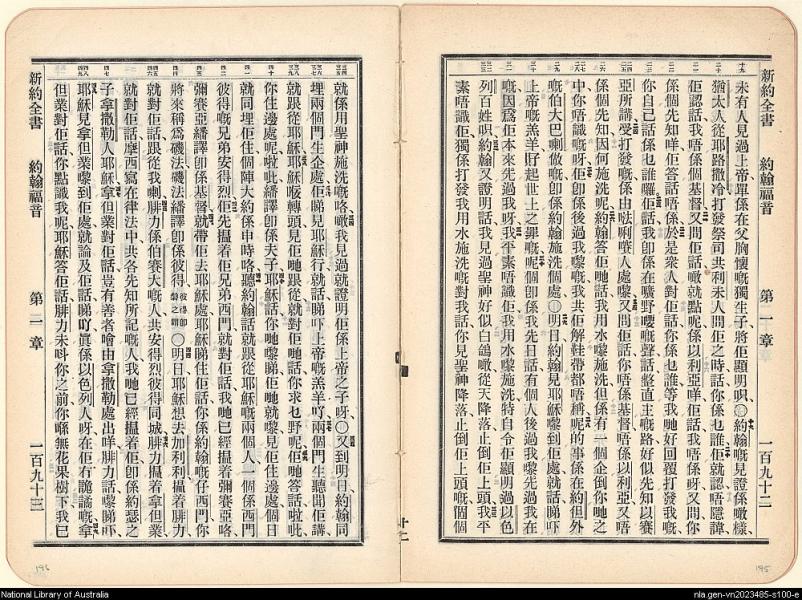 新約全書 約翰福音 第一章 一百九十二
未有人見過上帝單係在父胸懷嘅獨生子將佢顯明呮〇約翰嘅見證係噉樣
猶太人從耶路撒冷打發祭司共利未人問佢之時話你係乜誰佢就認唔隱諱
佢認話我唔係個基督又問佢話噉就點呢係以利亞咩佢話我唔係呀又問你
係個先知咩佢答話唔係於是衆人對佢話你係乜誰等我哋好回覆打發我嘅
你自己話係也誰囉佢話我卽係在曠野嘤嘅聲話整直主嘅路好似先知以賽
亞所講受打發嘅係由𠵽唎嚷人處嚟又問佢話你唔係基督唔係以利亞又唔
係個先知因何施洗呢約翰答佢哋話我用水嚟施洗但係有一個企倒你哋之
中你唔識嘅呀佢卽係後過我嚟嘅我共佢解鞋帶都唔稱呢的事係在約但外
嘅伯大巴喇做嘅卽係約翰施洗個處〇明日約翰見耶穌嚟到佢處就話睇吓
上帝嘅羔羊孭起世上之罪嘅呢個卽係我先日話有個人後過我嚟先過我在
嘅因爲佢本來先過我呀我平素唔識佢我用水嚟施洗特自令佢顯明過以色
列百姓呮約翰又證明話我見過聖神好似白鴿噉從天降落止倒佢上頭我平
素唔識佢獨係打發我用水施洗嘅對我話你見聖神降落止倒佢上頭嘅個個
新約全書 約翰福音 第二章 一百九十三
就係用聖神施洗嘅咯噉我見過就證明佢係上帝之子呀〇又到明日約翰同
埋兩個門生企處佢睇見耶穌行就話睇吓上帝嘅羔羊吖兩個門生聽聞佢講
就跟從耶穌耶穌嚈轉頭見佢哋跟從就對佢哋話你求乜野呢佢哋答話啦吡
你住邊處呢啦吡繙譯卽係夫子耶穌話你哋嚟睇佢哋就嚟見佢住邊處個日
就同埋佢住個陣大約係申時咯聽約翰話就跟從耶穌嘅兩個人一個係西門
彼得嘅兄弟安得烈佢先搵着佢兄弟西門就對佢話我哋已經搵着彌賽亞咯
彌賽亞繙譯卽係基督就帶佢去耶穌處耶穌睇住佢話你係約翰嘅仔西門你
將來稱爲磯法磯法繙譯卽係彼得〇明日耶穌想去加利利搵着腓力
就對佢話跟從我喇腓力係伯賽大嘅人共安得烈彼得同城腓力搵着拿但業
就對佢話摩西寫在律法中共各先知所記嘅人我哋已經搵着佢卽係約瑟之
子拿撒勒人耶穌拿但業對佢話豈有善者噲由拿撒勒處出咩腓力話嚟睇吓
耶穌見拿但業嚟到佢處就論及佢話睇吖眞係以色列人呀在佢有詭譎嘅拿
但業對佢話你點識我呢耶穌答佢話腓力未呌你之前你喺無花果樹下我已
十二
196
195
National Library of Australia
nla.gen-vn2023485-s100-e